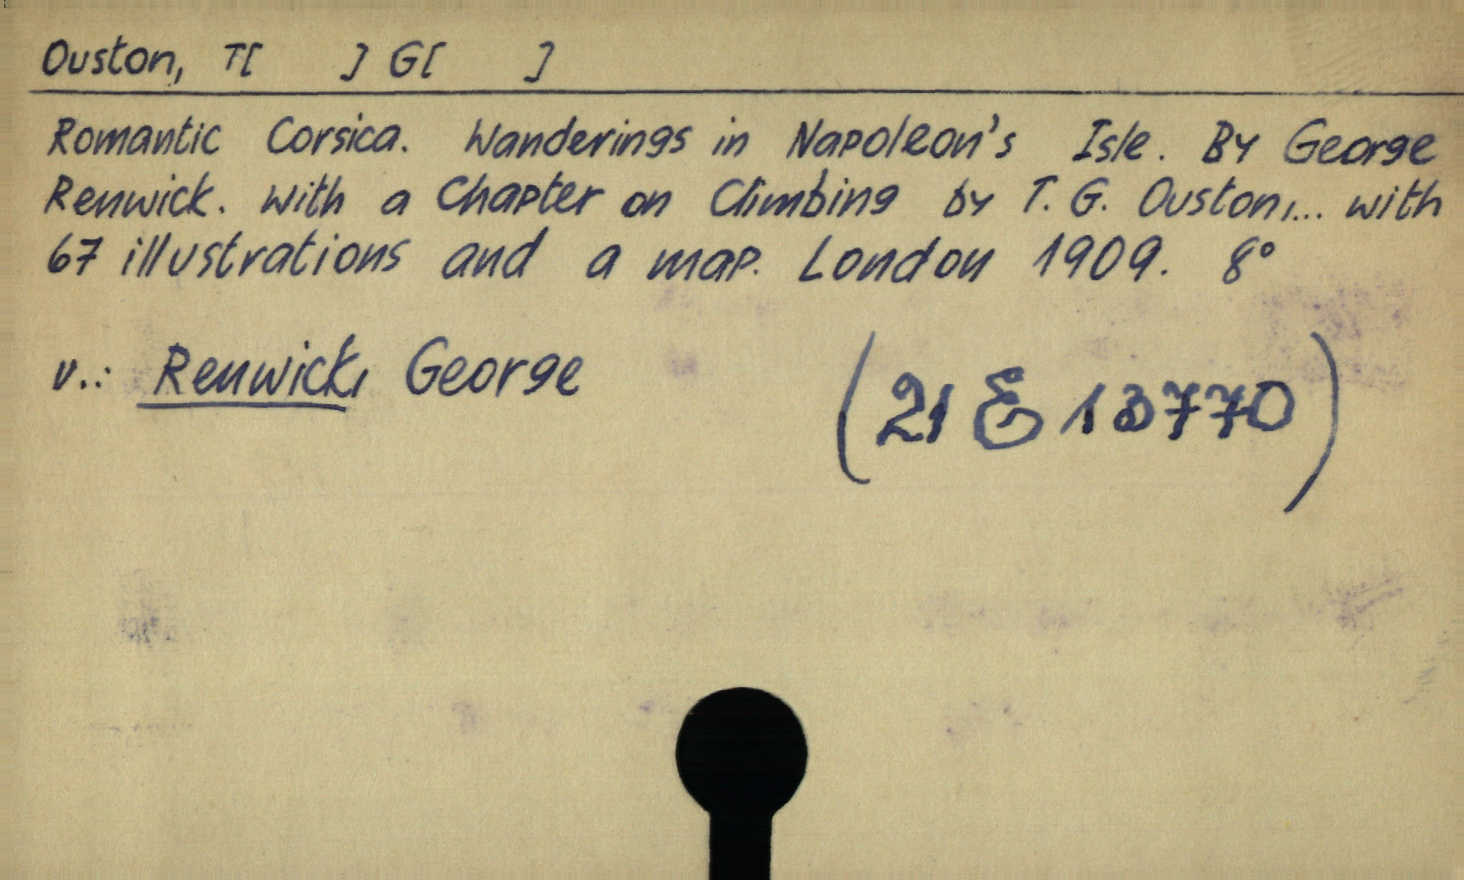 Ouston, T[ ] G[ ]
Romantic Corsica. Wanderings in Napoleon's Isle. By George
Renwick. With a Chapter on Climbing by T. G. Ouston,... with
67 illustrations and a map. London 1909. 8°
v.: Renwick, George
(21 E 13770)